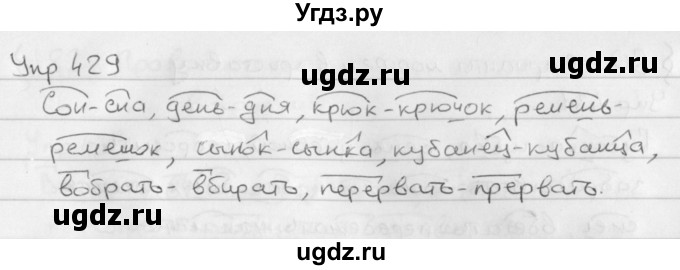 Угдз.ру
Упр 429
Сон-сна, день-дня, крюк-крючок, ремень-
ремешок, сынок-сынка, кубанец-кубанца,
вобрать-вбирать, перервать-прервать.
ugdz.ru ugdz.ru
ugdz.ru ugdz.ru
ugdz.ru ugdz.ru